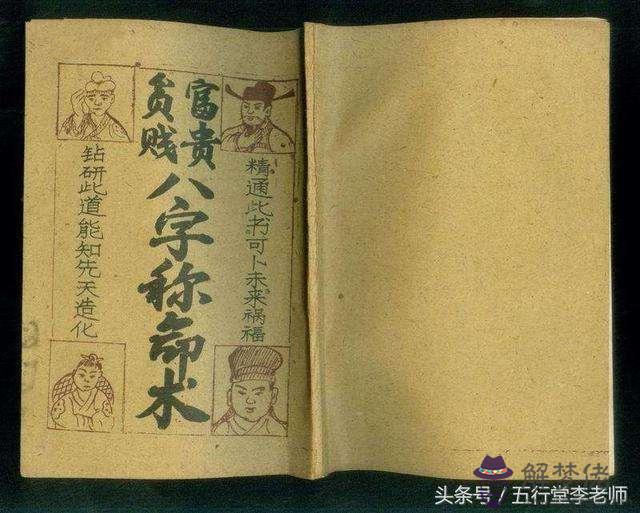 精通此书可卜未来祸福
富贵
贫贱
八字称命术
钻研此道能知先天造化
解梦佬
头条号／五行堂李老师